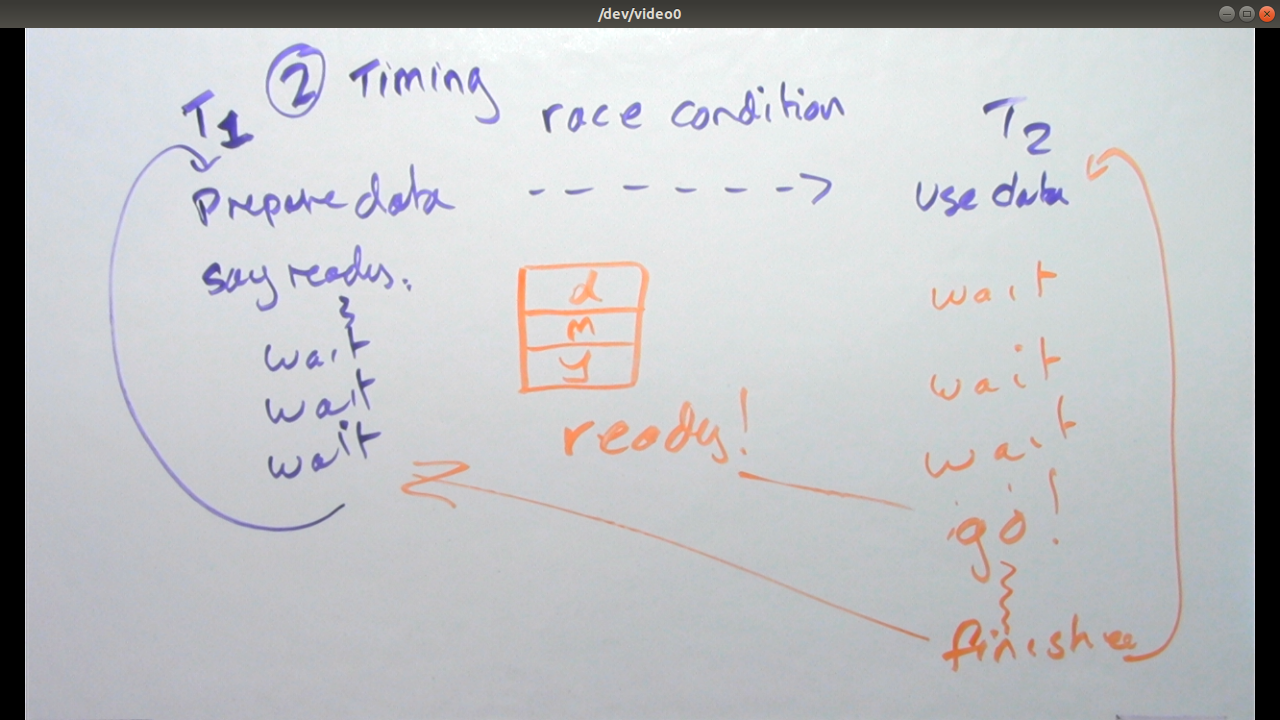 /dev/video0
② Timing
race condition
T1
T2
Prepare data
use data
say ready.
wait
wait
wait
d
m
y
ready!
wait
wait
wait
go!
finish